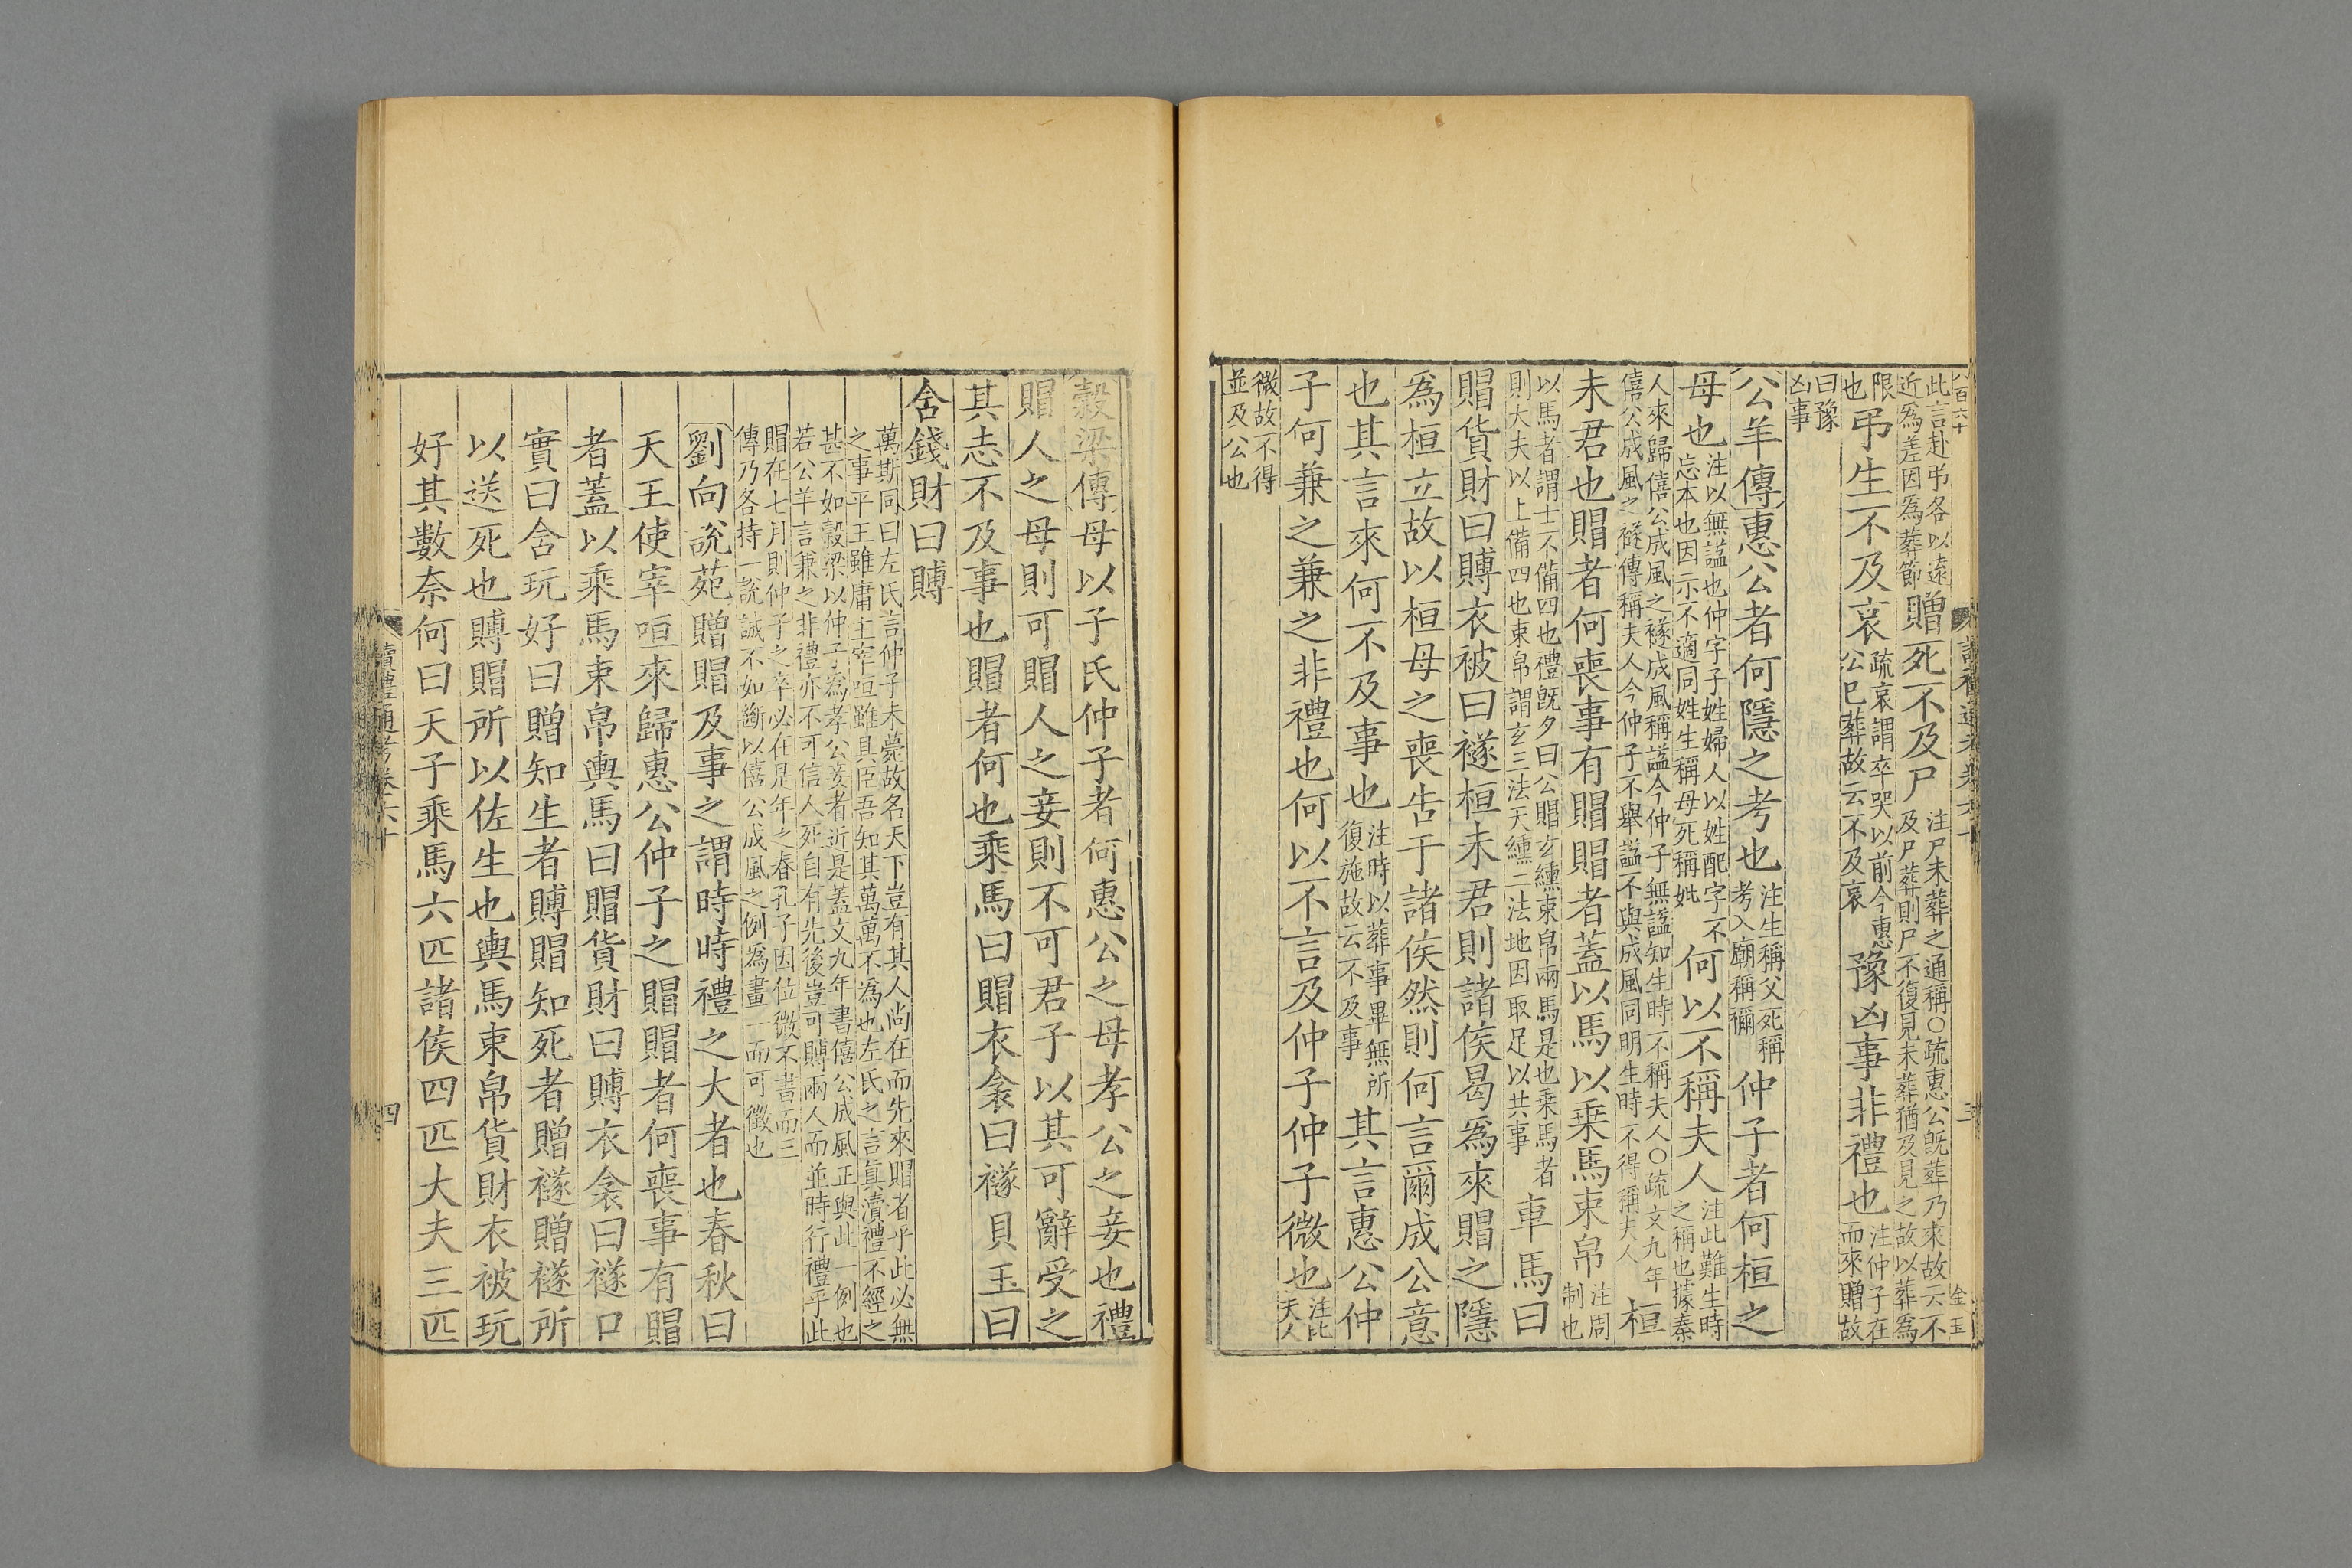 此言赴弔各以遠
近為差因為葬節贈死不及尸注尸未葬之通稱○疏惠公旣葬乃來故云不
及尸葬則尸不復見未葬猶及見之故以葬為
限
也弔生不及哀疏哀謂卒哭以前今惠
公已葬故云不及哀豫凶事非禮也注仲子在
而來贈故
曰豫
凶事
公羊傳惠公者何隱之考也注生稱父死稱
考入廟稱禰仲子者何桓之
母也注以無諡也仲字子姓婦人以姓配字不
忘本也因示不適同姓生稱母死稱妣何以不稱夫人注此難生時
之稱也據秦
人來歸僖公成風之襚成風稱諡今仲子無諡知生時不稱夫人○疏文九年
僖公成風之襚傳稱夫人今仲子不舉諡不與成風同明生時不得稱夫人桓
未君也賵者何喪事有賵賵者蓋以馬以乗馬束帛注周
制也
以馬者謂士不備四也禮旣夕曰公賵玄纁束帛兩馬是也乗馬者
則大夫以上備四也束帛謂玄三法天纁二法地因取足以共事車馬曰
賵貨財曰賻衣被曰襚桓未君則諸侯曷為來賵之隱
為桓立故以桓母之喪告于諸侯然則何言爾成公意
也其言來何不及事也注時以葬事畢無所
復施故云不及事其言惠公仲
子何兼之兼之非禮也何以不言及仲子仲子微也注比
夫人
微故不得
並及公也
穀梁傳母以子氏仲子者何惠公之母孝公之妾也禮
賵人之母則可賵人之妾則不可君子以其可辭受之
其志不及事也賵者何也乗馬曰賵衣衾曰襚貝玉曰
含錢財曰賻
萬斯同曰左氏言仲子未薨故名天下豈有其人尚在而先來賵者乎此必無
之事平王雖庸主宰咺雖具臣吾知其萬萬不為也左氏之言眞瀆禮不經之
甚不如穀梁以仲子為孝公妾者近是蓋文九年書僖公成風正與此一例也
若公羊言兼之非禮亦不可信人死自有先後豈可賻兩人而並時行禮乎此
賵在七月則仲子之卒必在是年之春孔子因位微不書而三
傳乃各持一說誠不如斷以僖公成風之例為畫一而可徵也
劉向說苑贈賵及事之謂時時禮之大者也春秋曰
天王使宰咺來歸惠公仲子之賵賵者何喪事有賵
者蓋以乘馬束帛輿馬曰賵貨財曰賻衣衾曰襚口
實曰含玩好曰贈知生者賻賵知死者贈襚贈襚所
以送死也賻賵所以佐生也輿馬束帛貨財衣被玩
好其數奈何曰天子乘馬六匹諸侯四匹大夫三匹
讀禮通考卷六十
四